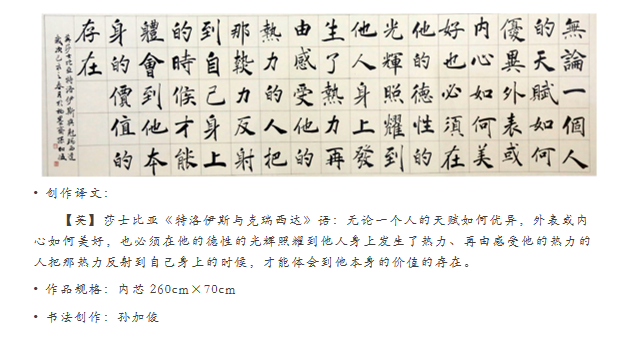 無論一個人
的天賦如何
優異外表或
内心如何美
好也必須在
他的德性的
光輝照耀到
他人身上發
生了熱力再
由感受他的
熱力的人把
那熱力反射
到自己身上
的時候才能
體會到他本
身的價值的
存在
英莎士比亞特洛伊斯與克瑞西達
• 创作译文:
【英】莎士比亚《特洛伊斯与克瑞西达》语：无论一个人的天赋如何优异，外表或内
心如何美好，也必须在他的德性的光辉照耀到他人身上发生了热力、再由感受他的热力的
人把那热力反射到自己身上的时候，才能体会到他本身的价值的存在。
• 作品规格：内芯 260cm×70cm
• 书法创作：孙加俊